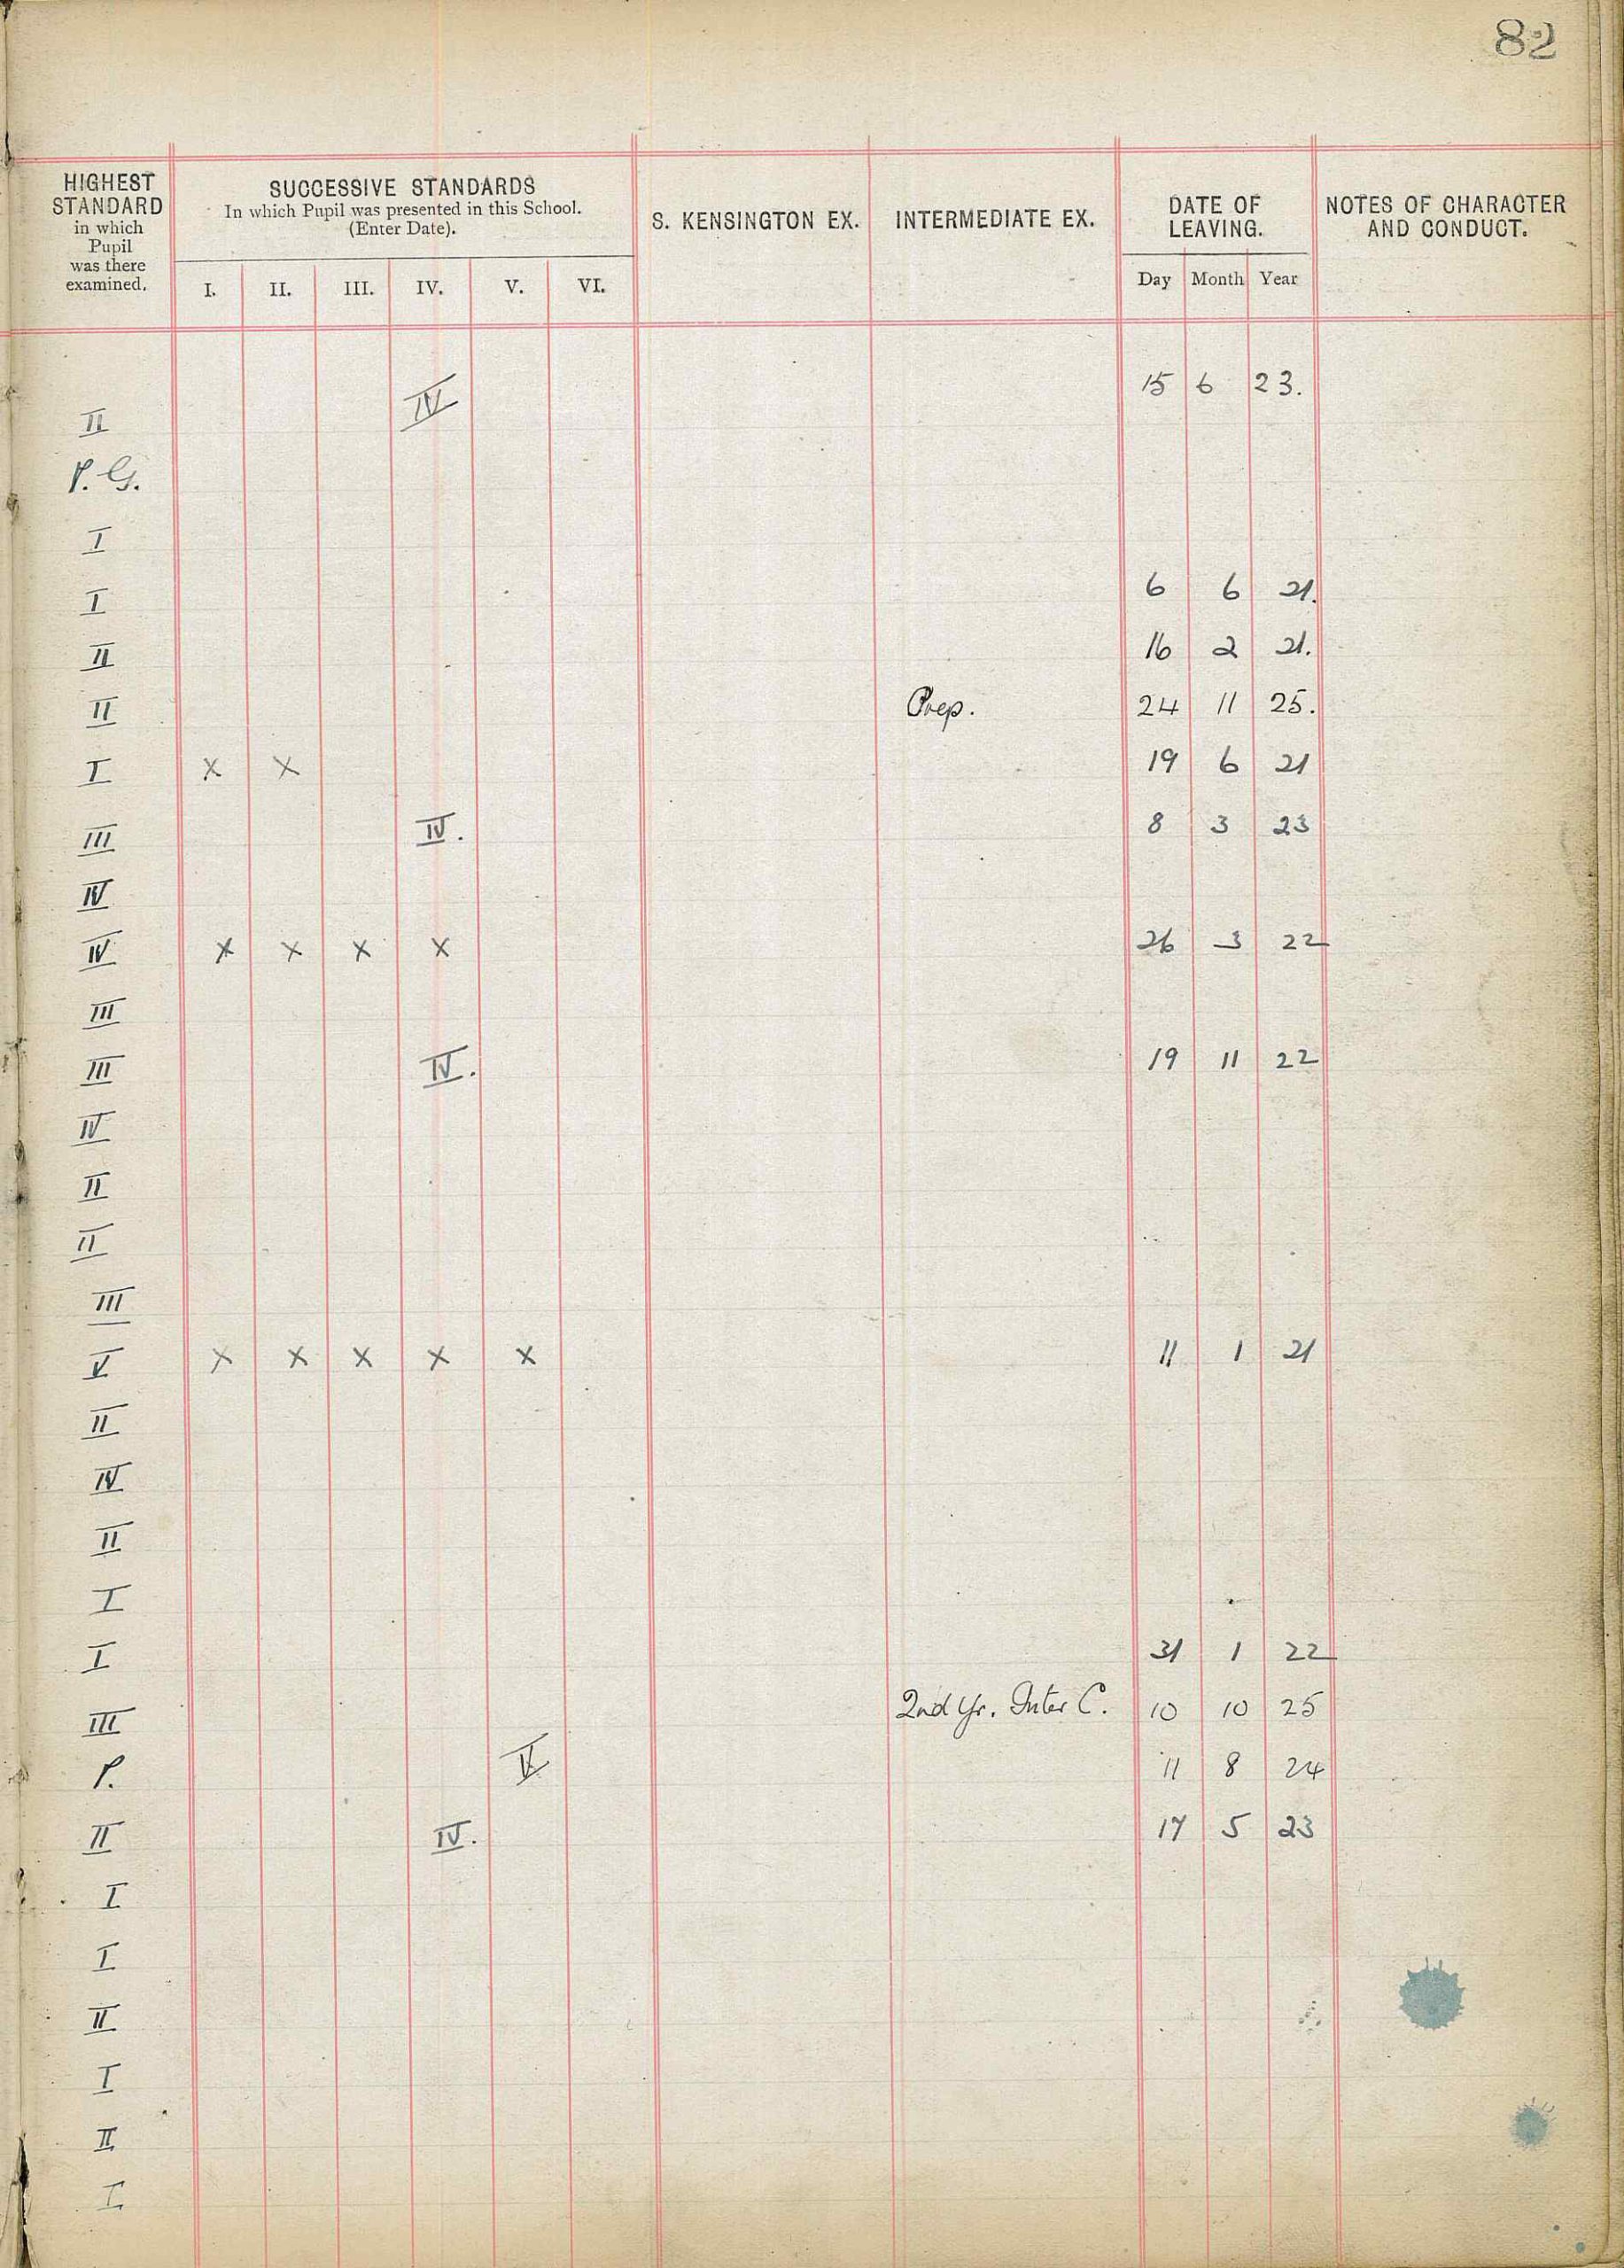 82
HIGHEST STANDARD in which Pupil was there examined.
SUCCESSIVE STANDARDS
In which Pupil was presented in this School.
(Enter Date).
I. II. III. IV. V. VI.
S. KENSINGTON EX.
INTERMEDIATE EX.
DATE OF LEAVING.
Day Month Year
NOTES OF CHARACTER AND CONDUCT.
II IV 15 6 23.
P. G.
I
I 6 6 21.
II 16 2 21.
II Prep. 24 11 25.
I x x 19 6 21
III IV. 8 3 23
IV
IV x x x x 26 3 22
III
III IV. 19 11 22
IV
II
II
III
V x x x x x 11 1 21
II
IV
II
I
I 31 1 22
III 2nd Yr. Inter C. 10 10 25
P. V 11 8 24
II IV. 17 5 23
I
I
II
I
II
I